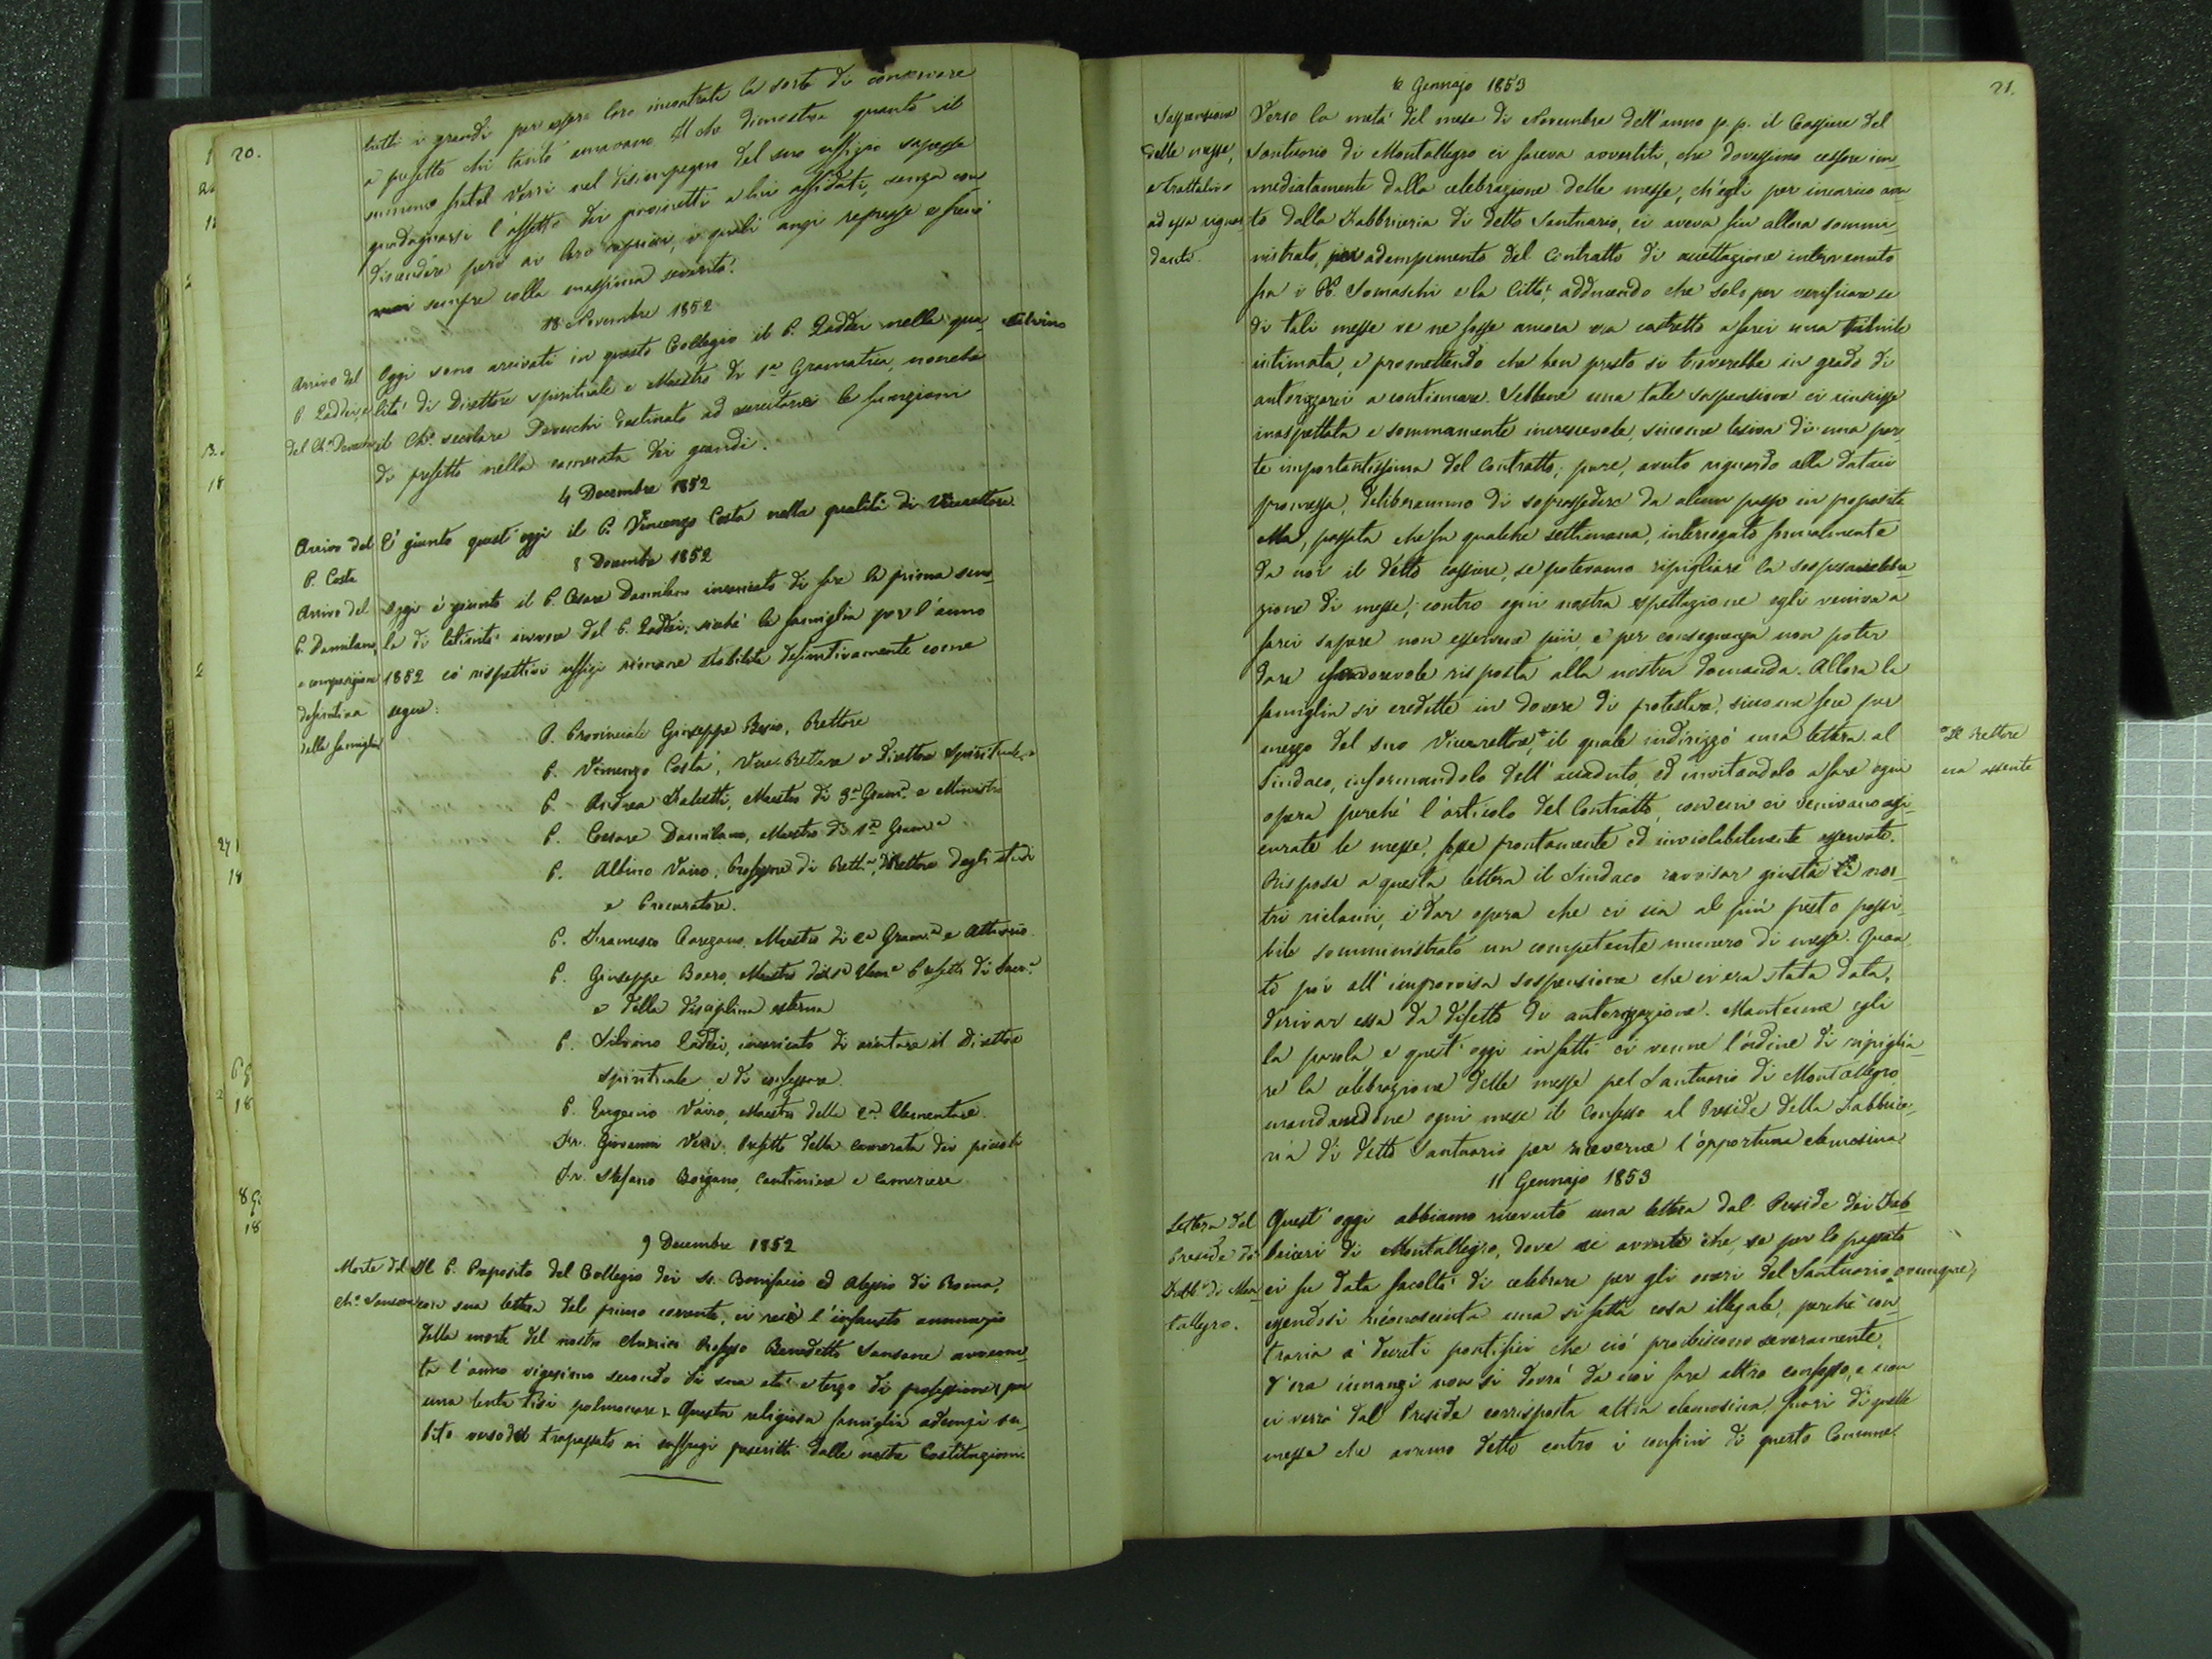 20.
tutti i grandi per essere loro incontrata la sorte di conservare
a prefetto chi tanto amavano. Il che dimostra quanto il
fratel Verri nel disimpegno del suo uffizio sapesse
guadagnarsi l'affetto dei giovinetti a lui affidati, senza con
discendere però ai loro capricci, i quali anzi represse e frenò
mai sempre colla massima severità.
18 Novembre 1852
Arrivo del
P. Laddei, e
del Ch.º
Oggi sono arrivati in questo Collegio il P. Laddei nella qua- Silvino
lità di Direttore spirituale e Maestro di 1ª Gramatica, nonchè
il Ch.º secolare destinato ad esercitarvi le funzioni
di prefetto nella camerata dei grandi.
4 Decembre 1852
Arrivo del
P. Costa
E' giunto quest'oggi il P. Vincenzo Costa nella qualità di Vicerettore.
8 Decembre 1852
Arrivo del
P. Damilano,
e composizione
definitiva
della famiglia
Oggi è giunto il P. Cesare Damilano incaricato di fare la prima scuo-
la di latinità invece del P. Laddei; sicchè la famiglia per l'anno
1852 co' rispettivi uffizi rimane stabilita definitivamente come
segue:
P. Provinciale Giuseppe Besio, Rettore
P. Vincenzo Costa, Vice-Rettore e Direttore Spirituale
P. Andrea, Maestro di 3ª Gram.ª e Ministro
P. Cesare Damilano, Maestro di 1ª Gram.ª
P. Albino Vairo, Professore di Rett.ª, Direttore degli studi
e Procuratore.
P. Francesco, Maestro di 2ª Gram.ª e Attuario
P. Giuseppe Boero, Maestro di 1ª Elem.e Prefetto di Sacr.ª
e della disciplina esterna
P. Silvino Laddei, incaricato di aiutare il Direttore
spirituale e di confessare.
P. Eugenio Vairo, Maestro della 2ª Elementare.
Fr. Giovanni Verri, Prefetto della camerata dei piccoli
Fr. Stefano, Cantiniere e Cameriere
9 Decembre 1852
Morte del
Ch.º Sansone
Il P. Preposito del Collegio dei Ss. Bonifacio ed Alessio di Roma,
con sua lettera del primo corrente, ci recò l'infausto annunzio
della morte del nostro Chierico Professo Benedetto Sansone avvenu-
ta l'anno vigesimo secondo di sua età e terzo di professione, per
una lenta tisi polmonare. Questa religiosa famiglia adempì su-
bito verso del trapassato ai suffragi prescritti dalle nostre Costituzioni.
21.
6 Gennajo 1853
Sospensione
delle messe,
e trattative
ad essa riguar
danti.
Verso la metà del mese di Novembre dell'anno p. p. il Cassiere del
Santuario di Montallegro ci faceva avvertiti, che dovessimo cessare im-
mediatamente dalla celebrazione delle messe, ch'egli per incarico avu
to dalla Fabbriceria di detto Santuario, ci aveva fin allora sommi
nistrato, per adempimento del Contratto di accettazione intervenuto
fra i PP. Somaschi e la Città; adducendo che solo per verificare se
di tali messe ve ne fosse ancora era costretto a farci una simile
intimata, e promettendo che ben presto si troverebbe in grado di
autorizzarci a continuare. Sebbene una tale sospensione ci riuscisse
inaspettata e sommamente increscevole, siccome lesiva di una par
te importantissima del Contratto; pure, avuto riguardo alla dataci
promessa, deliberammo di soprassedere da alcun passo in proposito
Ma, passata che fu qualche settimana, interrogato formalmente
da noi il detto cassiere, se potevamo ripigliare la sospesa celebra-
zione di messe; contro ogni nostra espettazione egli veniva a
farci sapere non essercene più, e per conseguenza non poter
dare favorevole risposta alla nostra domanda. Allora la
famiglia si credette in dovere di protestare, siccome fece per
mezzo del suo Vicerettore*, il quale indirizzò una lettera al
*Il Rettore
era assente
Sindaco, informandolo dell'accaduto, ed invitandolo a fare ogni
opera perché l'articolo del Contratto, con cui ci venivano assi-
curate le messe, fosse prontamente ed inviolabilmente osservato.
Rispose a questa lettera il Sindaco ravvisar giusti i nos-
tri richiami, e dar opera che ci sia al più presto possi-
bile somministrato un competente numero di messe. Quan
to poi all'improvvisa sospensione che ci era stata data,
derivar essa da difetto di autorizzazione. Mantenne egli
la parola, e quest'oggi infatti ci venne l'ordine di ripiglia-
re la celebrazione delle messe pel Santuario di Montallegro
mandandone ogni mese il Confesso al Preside della Fabbrice-
ria di detto Santuario per riceverne l'opportuna elemosina
11 Gennajo 1853
Lettera del
Preside dei
Fabb.ri di Mon
tallegro.
Quest'oggi abbiamo ricevuto una lettera dal Preside dei Fab-
briceri di Montallegro, dove ci avverte che, se per lo passato
ci fu data facoltà di celebrare per gli oneri del Santuario ovunque,
essendosi riconosciuta una siffatta cosa illegale, perchè con-
traria a' decreti pontifici che ciò proibiscono severamente,
d'ora innanzi non si dovrà da noi fare altro confesso, e non
ci verrà dal Preside corrisposta altra elemosina, fuori di quelle
messe che avremo detto entro i confini di questo Comune.